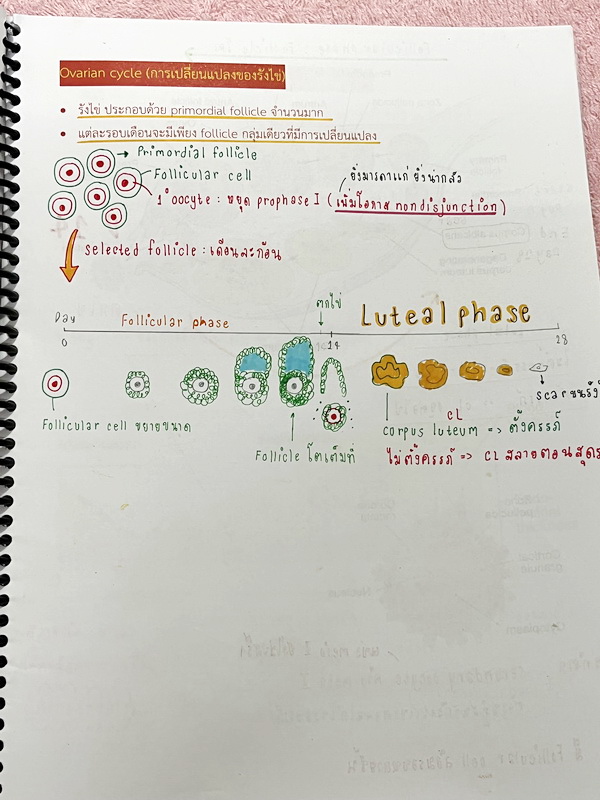 Ovarian cycle (การเปลี่ยนแปลงของรังไข่)
• รังไข่ ประกอบด้วย primordial follicle จำนวนมาก
• แต่ละรอบเดือนจะมีเพียง follicle กลุ่มเดียวที่มีการเปลี่ยนแปลง
Primordial follicle
Follicular cell
ยิ่งมารดาแก่ ยิ่งน่ากลัว
1° oocyte : หยุด prophase I (เพิ่มโอกาส nondisjunction)
selected follicle : เดือนละก้อน
Day
Follicular phase
ตกไข่
Luteal phase
0
14
28
Follicular cell ขยายขนาด
Follicle โตเต็มที่
CL
corpus luteum => ตั้งครรภ์
ไม่ตั้งครรภ์ => CL สลายตอน
scar บน